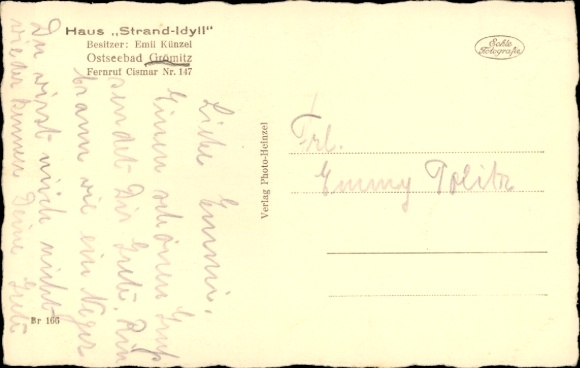 Haus „Strand-Idyll“
Besitzer: Emil Künzel
Ostseebad Grömitz
Fernruf Cismar Nr. 147
Echte
Fotografie
Liebe Emmi,
Einen schönen Gruß
sendet Dir Grete. Bin
braun wie ein Neger
Du wirst mich nicht
wieder kennen Deine Grete
Verlag Photo-Heinzel
Frl.
Emmy Politz
Br 166